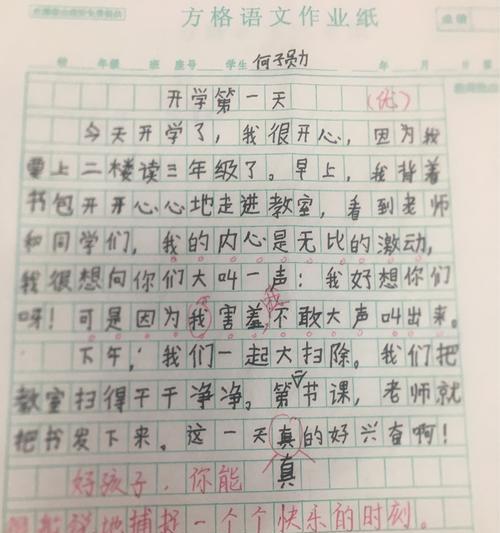 方格语文作业纸
成绩
年级 班 座号 学生 何予勋 年 月 日
开学第一天 (优)
今天开学了，我很开心，因为我
要上二楼读三年级了。早上，我背着
书包开开心心地走进教室，看到老师
和同学们，我的内心是无比的激动，
我很想向你们大叫一声：我好想你们
呀！可是因为我害羞，不敢大声叫出来。
下午，我们一起大扫除。我们把
教室扫得干干净净。第节课，老师就
把书发下来。这一天真的好兴奋啊！
好孩子，你能 真
说地捕捉一个个快乐的时刻。